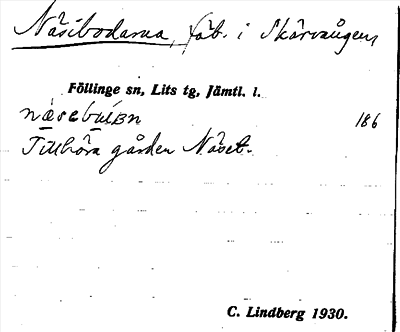 Näsbodarna, fäb. i Skärvången
Föllinge sn, Lits tg, Jämtl. l.
186
Tillhöra gården Näset.
C. Lindberg 1930.